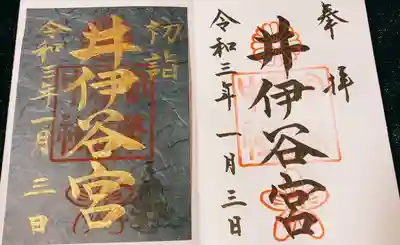 初詣
井伊谷宮
令和三年一月三日
奉拝
井伊谷宮
令和三年一月三日